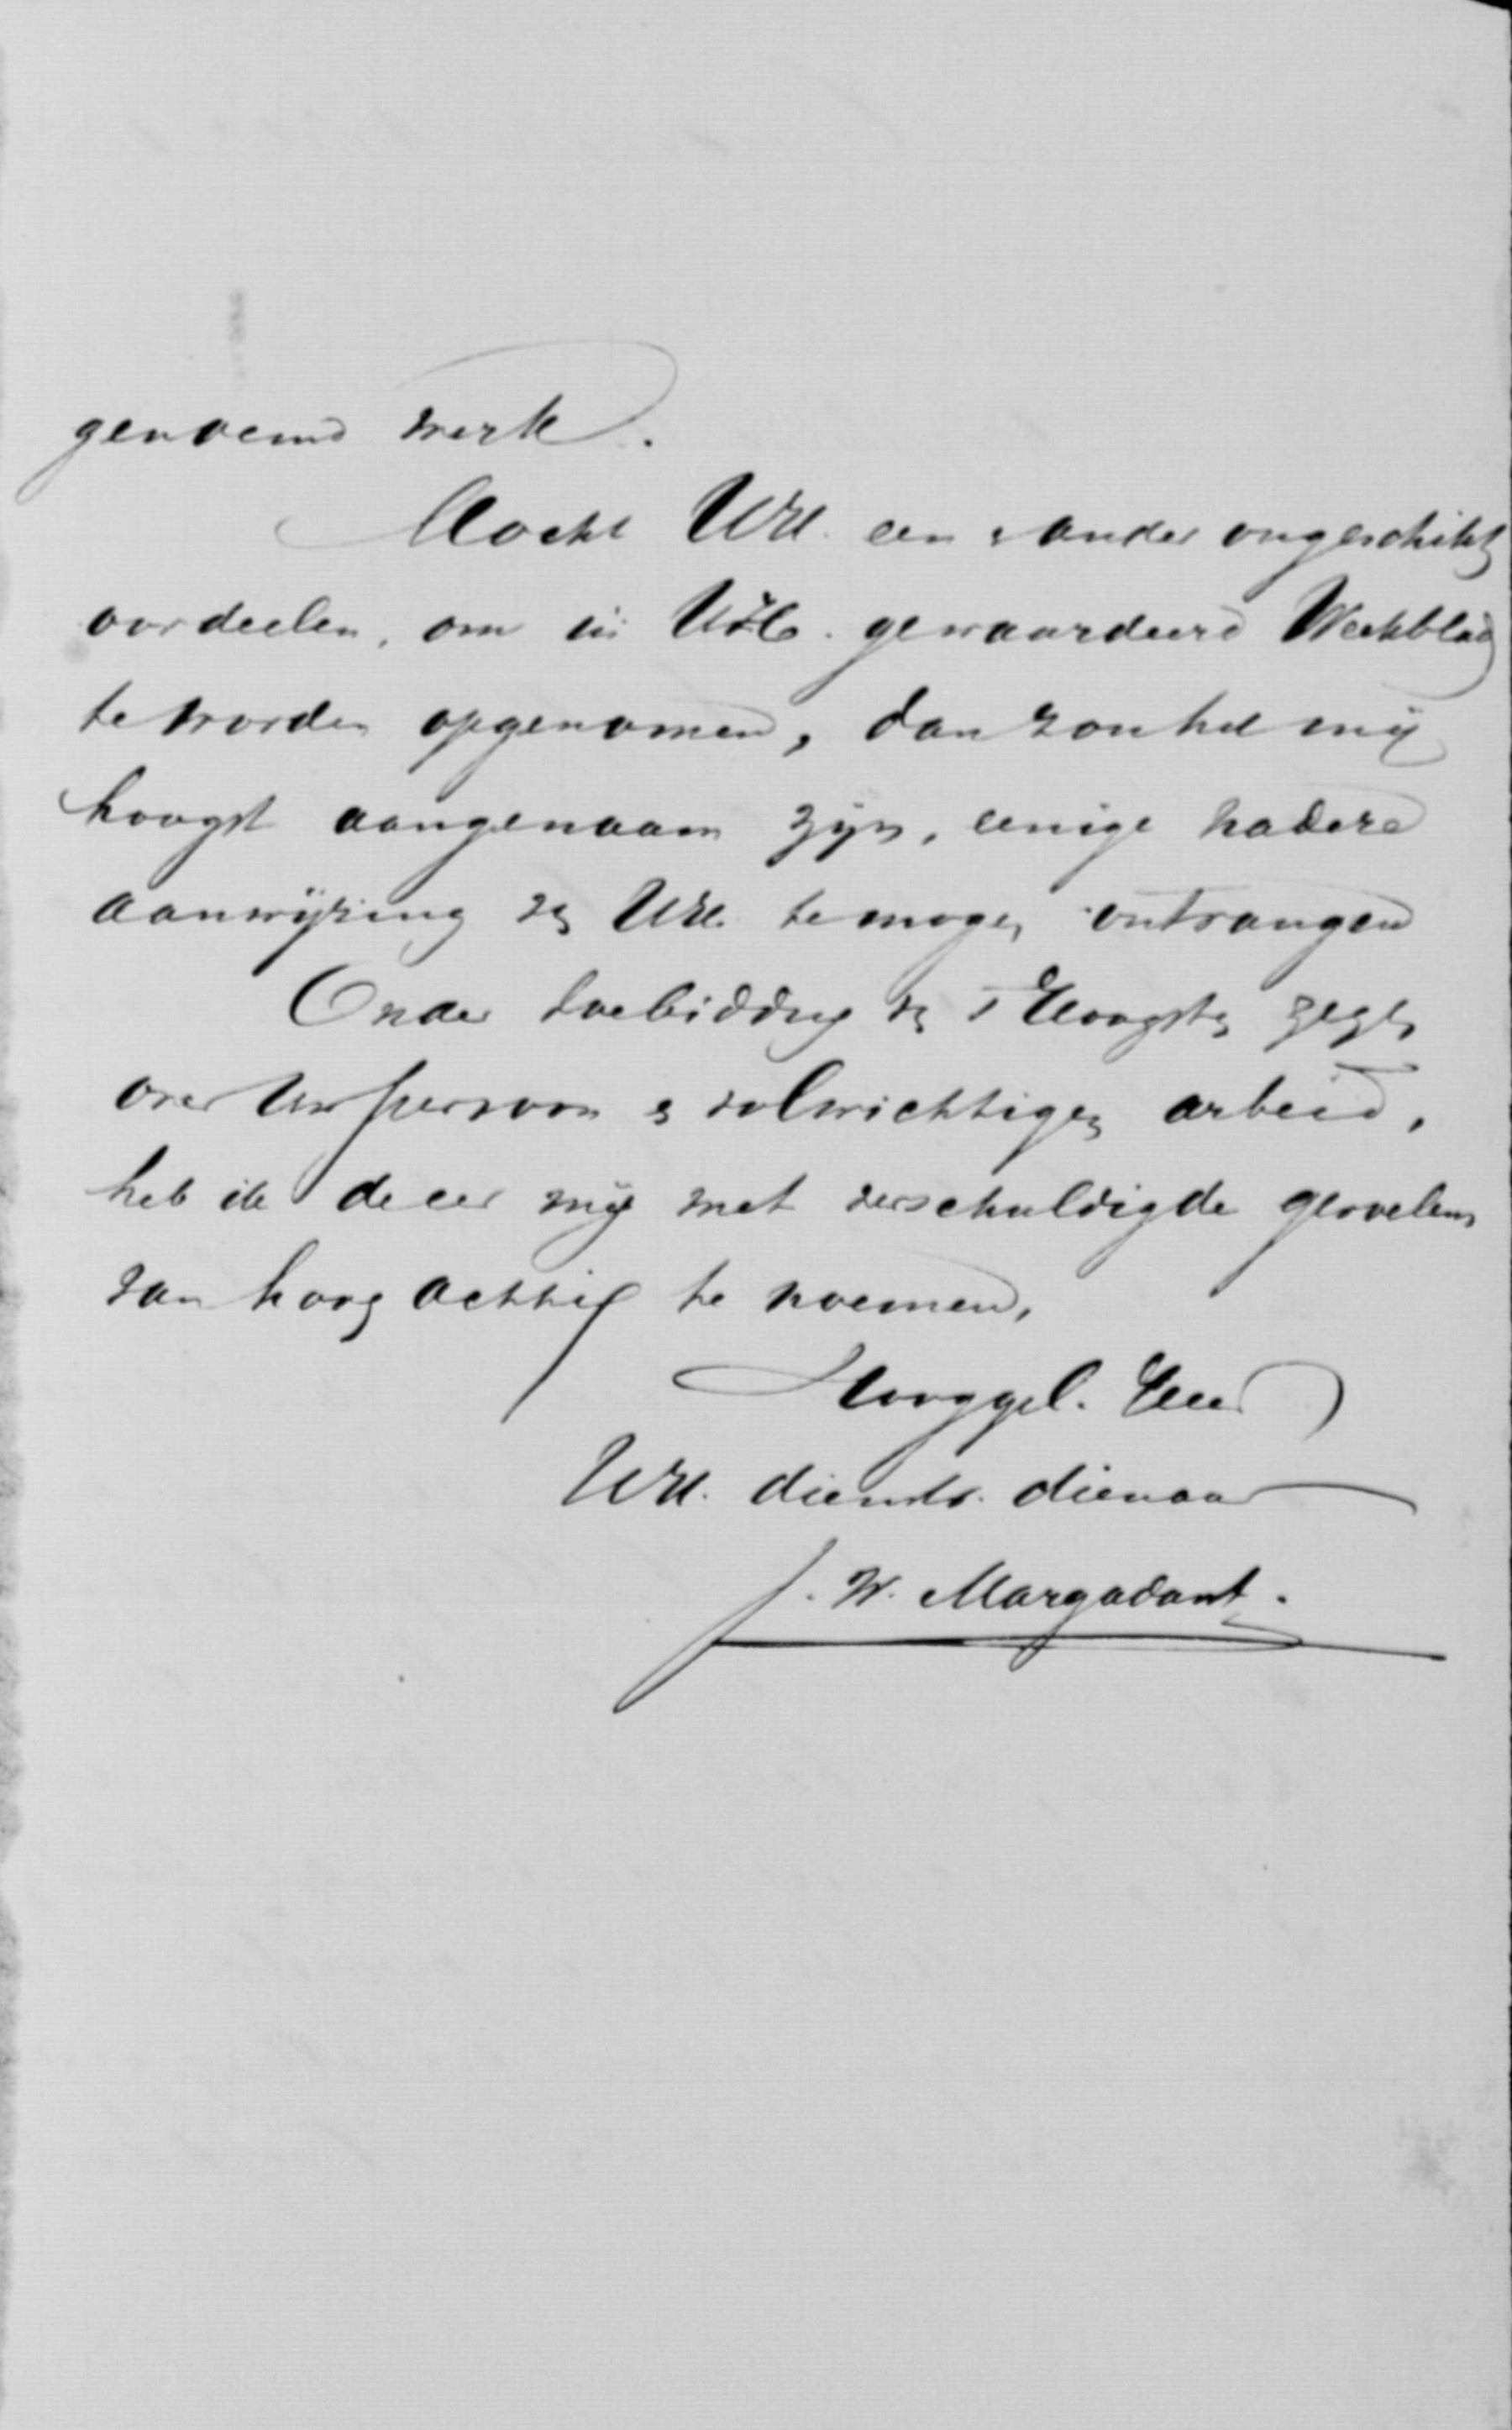 genoemd werk.
Mocht UEd. een & ander ongeschikt
oordeelen, om in UEd. gewaardeerd Weekblad
te worden opgenomen, dan zou het mij
hoogst aangenaam zijn, eenige nadere
aanwijzing v. UEd. te mogen ontvangen
Onder toebidding v. 's Hoogsten zegen
over Uw persoon & veelwichtigen arbeid,
heb ik de eer mij met verschuldigde gevoelens
van hoogachting te noemen,
Hooggel. Heer
UEd. dienstv. dienaar
J. W. Margadant.